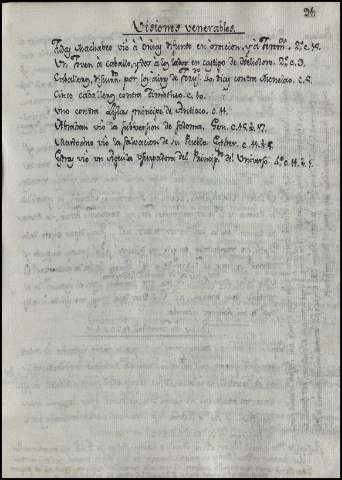 94
Visiones venerables.
Judas Machabeo vió á Onias difunto en oracion, y á Jerem.s 2.º c. 15.
Un Joven á caballo, y dos á los lados en castigo de Heliodoro. 2.º c. 3.
Caballeros, discurrn. por los aires de Jerus.n 40. dias contra Menelao. c. 5.
Cinco caballeros contra Timotheo c. 10.
Uno contra Lysias príncipe de Antioco. c. 11.
Abraham vió la subversion de Sodoma. Gen. c. 15. ℣. 17.
Mardoqueo vió la salvacion de su Pueblo. Esther. c. 11. ℣. 8.
Esdras vió un Aguila usurpadora del Princip.º del Universo. 4.º c. 11. ℣. 5.